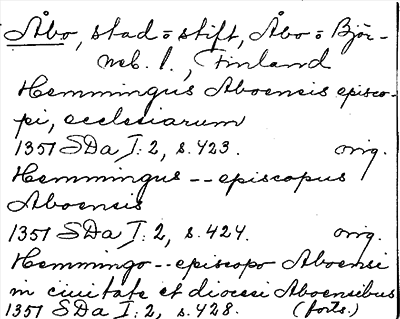 Åbo, stad = stift, Åbo = Björ-
neb. l., Finland
Hemmingus Aboensis episco-
pi, ecclesiarum
1351 SDa I: 2, s. 423. orig.
Hemmingus -- episcopus
Aboensis
1351 SDa I: 2, s. 424. orig.
Hemmingo -- episcopo Aboensi
in ciuitate et diocesi Aboensibus
1351 SDa I: 2, s. 428. (forts.)